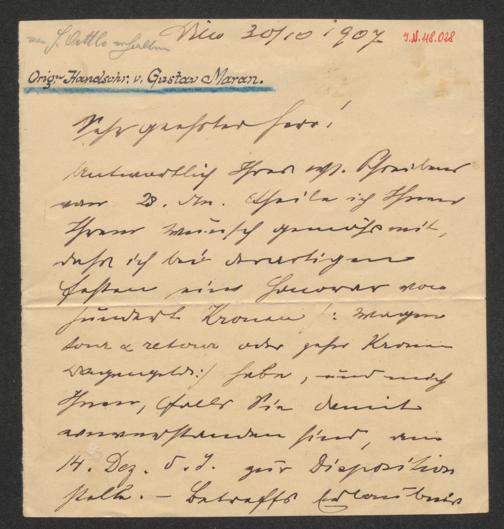 von J. Ottlo erhalten
Wien 30/10 1907
I.N. 48.028
Orig.-Handschr. v. Gustav Maran.
Sehr geehrter Herr!
Antwortlich Ihres Schreibens
vom 28. theile ich Ihnen
Ihrem Wunsch gemäß mit,
daß ich bei derartigen
Festen ein Honorar von
hundert Kronen /: Wagen
tour & retour oder zehn Kronen
Wagengeld :/ habe, und mich
Ihnen, falls Sie damit
einverstanden sind, am
14. Dez. d. J. zur Disposition
stelle. – Betreffs Erlaubnis